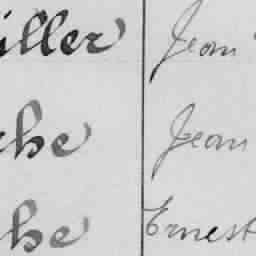 iller Jean
che Jean
he Ernest